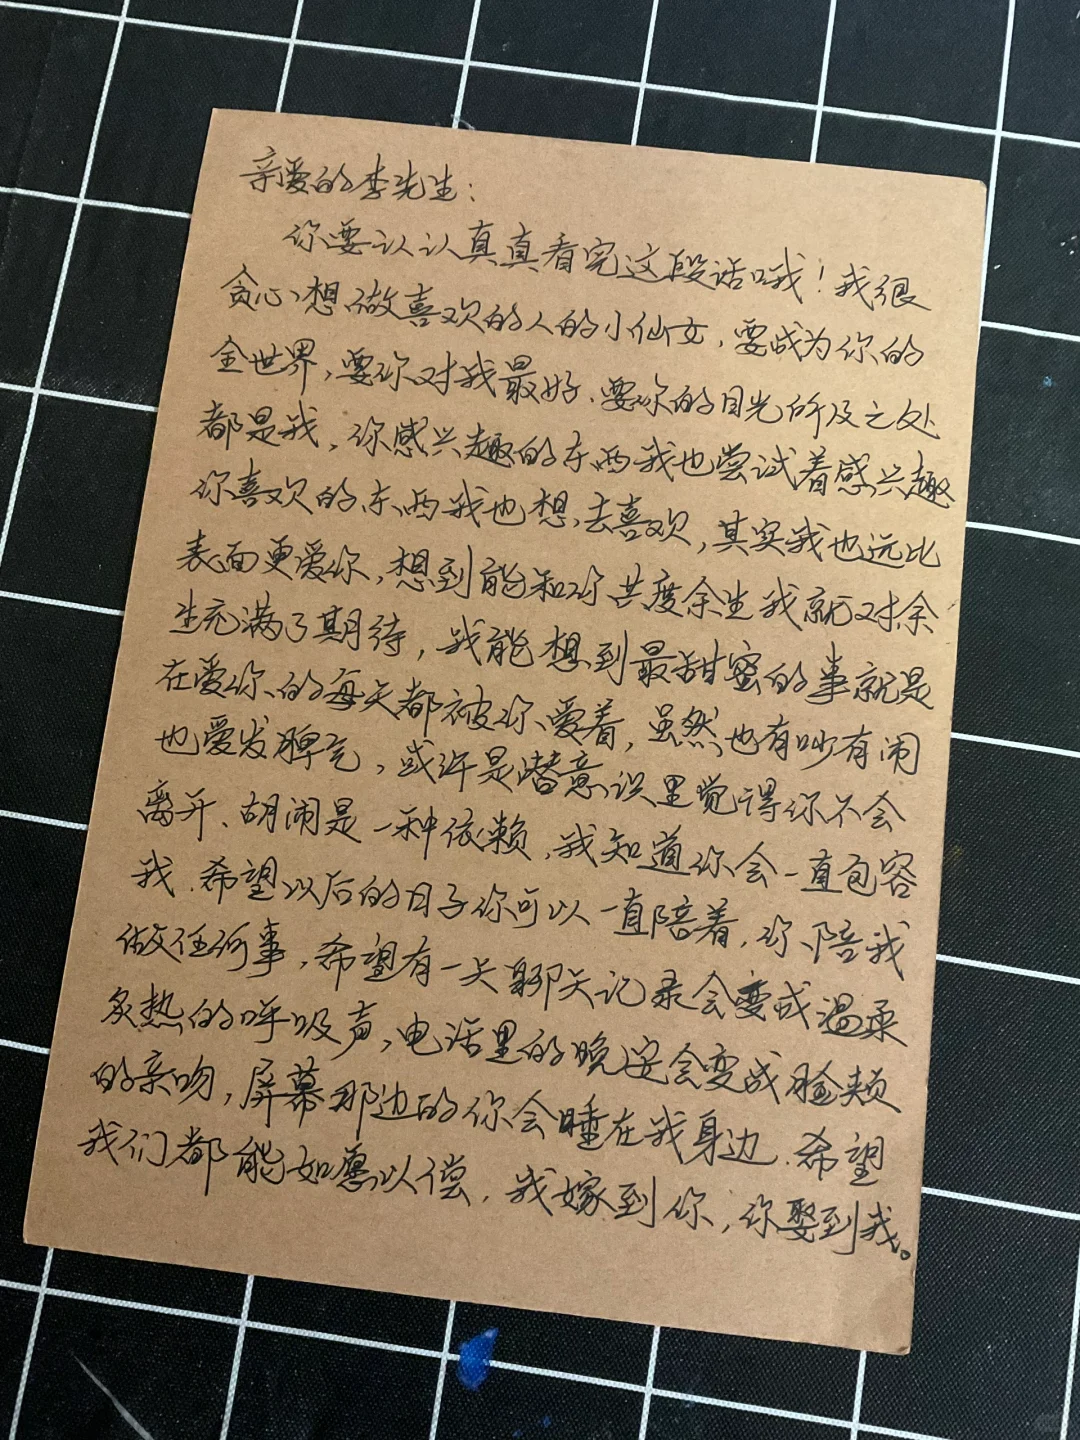 亲爱的李先生：
你要认认真真看完这段话哦！我很
贪心，想做喜欢的人的小仙女，要成为你的
全世界，要你对我最好、要你的目光所及之处
都是我，你感兴趣的东西我也尝试着感兴趣
你喜欢的东西我也想去喜欢，其实我也远比
表面更爱你，想到能和你共度余生我就对余
生充满了期待，我能想到最甜蜜的事就是
在爱你的每天都被你爱着，虽然也有吵有闹
也爱发脾气，或许是潜意识里觉得你不会
离开、胡闹是一种依赖，我知道你会一直包容
我．希望以后的日子你可以一直陪着，你陪我
做任何事，希望有一天聊天记录会变成温柔
炙热的呼吸声，电话里的晚安会变成脸颊
的亲吻，屏幕那边的你会睡在我身边．希望
我们都能如愿以偿，我嫁到你，你娶到我。